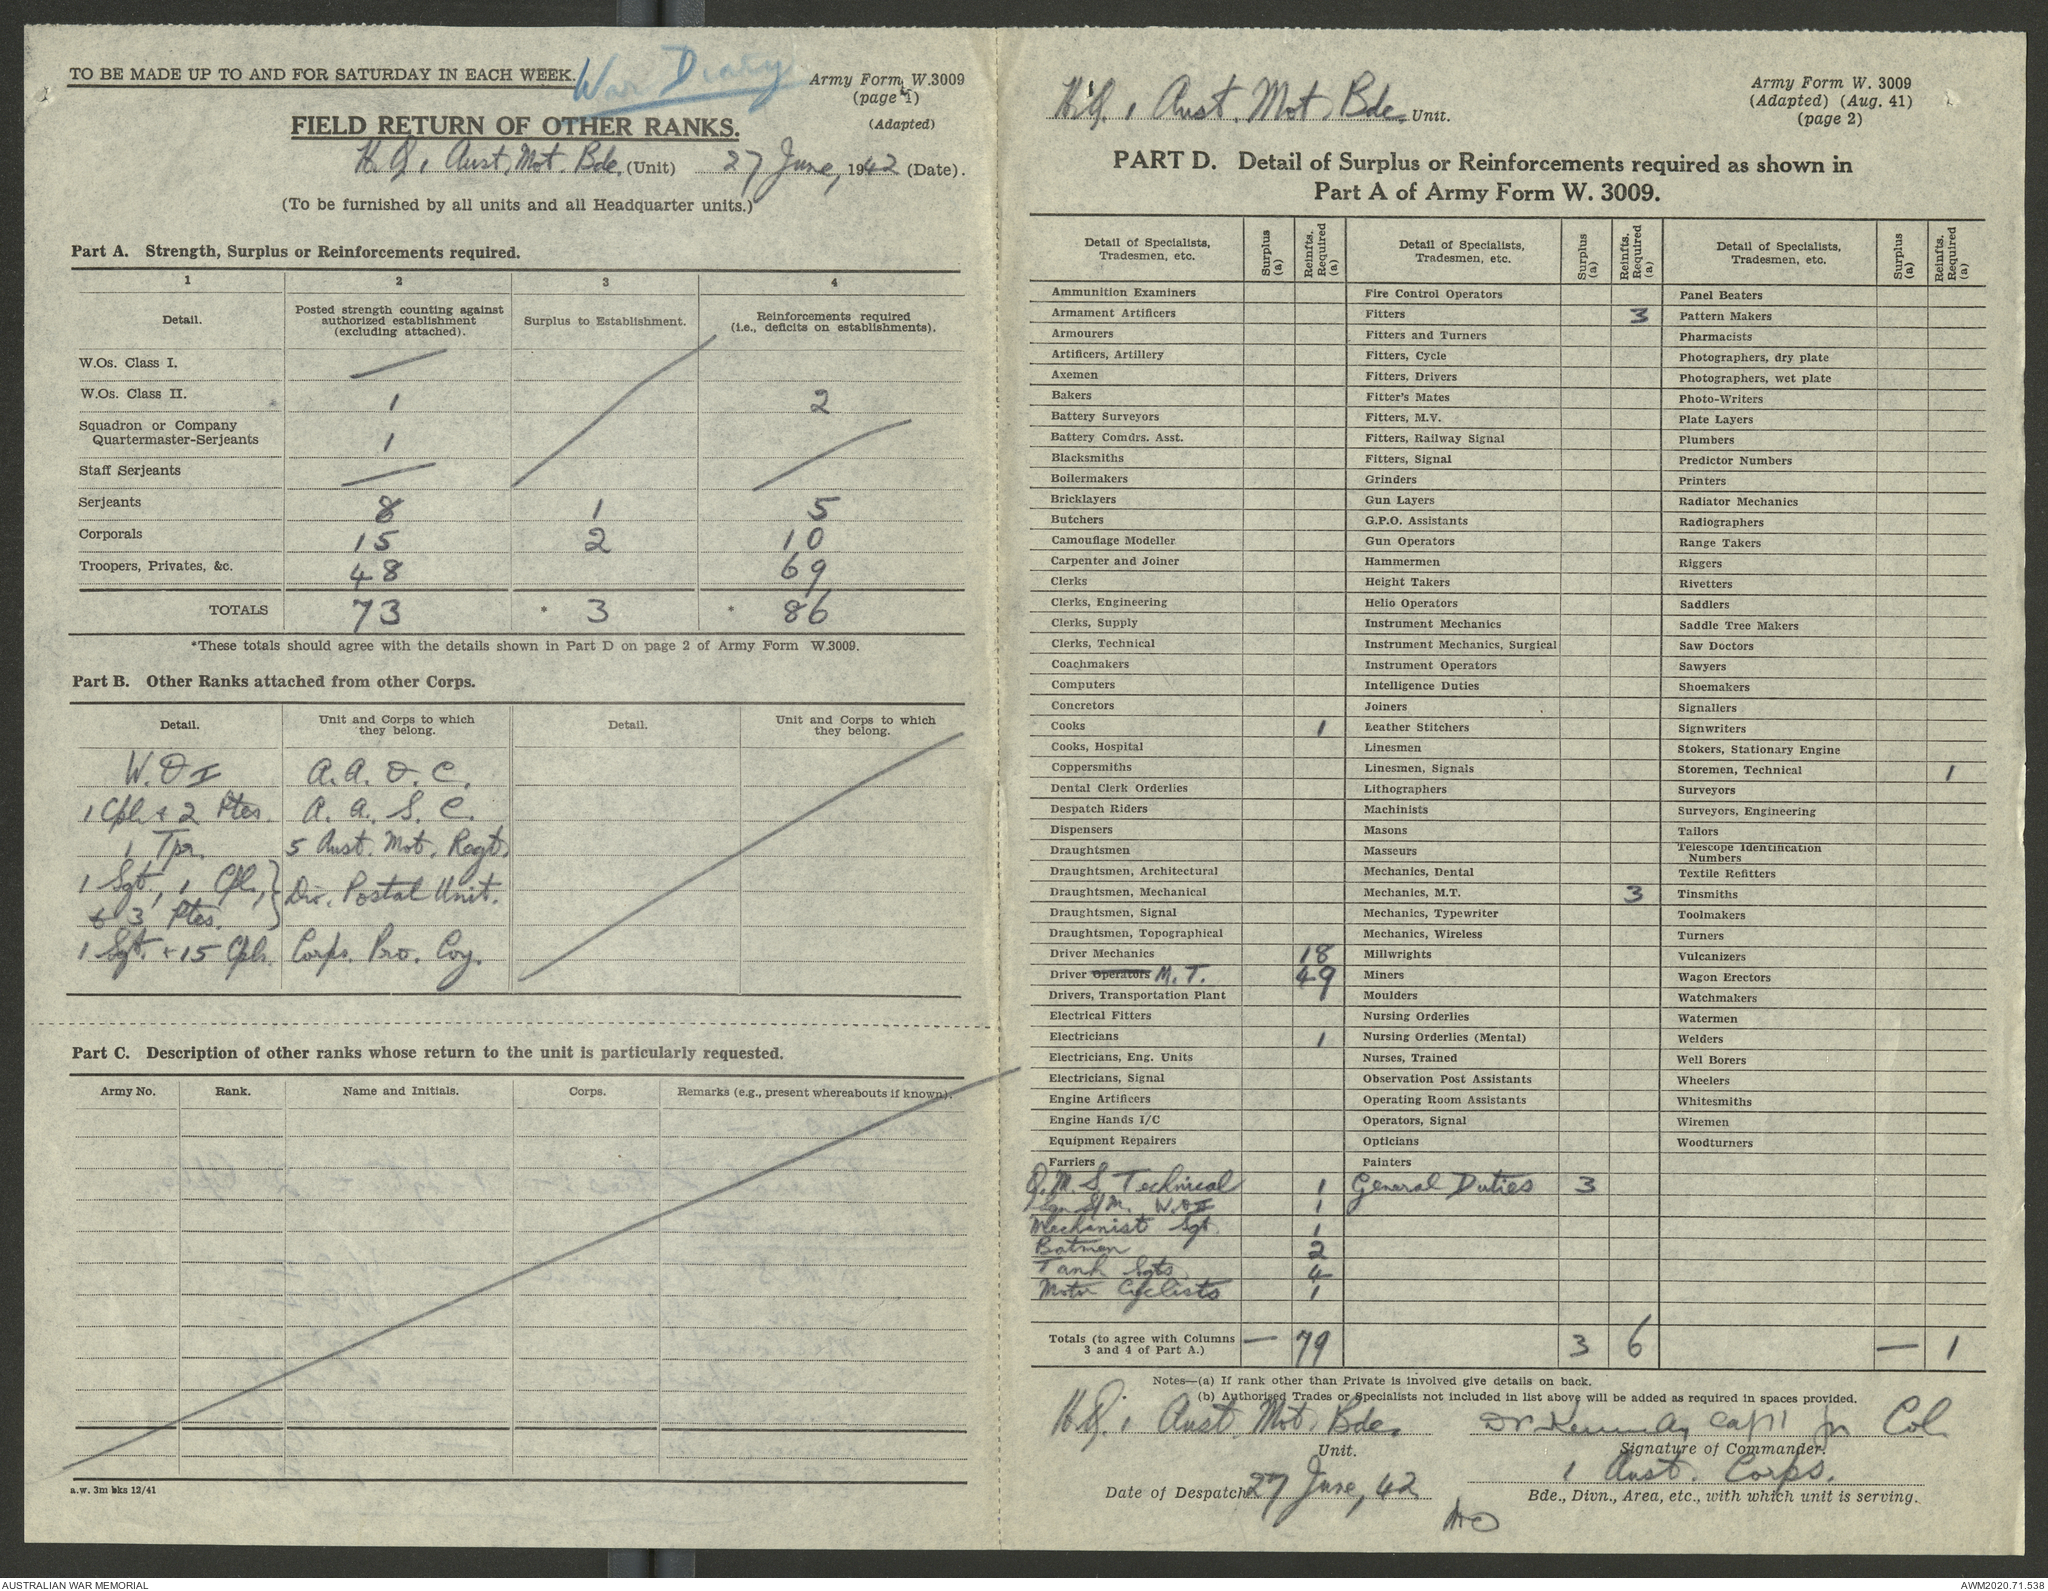 TO BE MADE UP TO AND FOR SATURDAY IN EACH WEEK.
War Diary
Army Form W.3009
(page 1)
(Adapted)
FIELD RETURN OF OTHER RANKS.
H.Q. 1 Aust. Mot. Bde. (Unit) 27 June, 1942 (Date).
(To be furnished by all units and all Headquarter units.)
Part A. Strength, Surplus or Reinforcements required.
1 2 3 4
Detail. Posted strength counting against authorized establishment (excluding attached). Surplus to Establishment. Reinforcements required (i.e., deficits on establishments).
W.Os. Class I.
W.Os. Class II. 1 2
Squadron or Company
Quartermaster-Serjeants 1
Staff Serjeants
Serjeants 8 1 5
Corporals 15 2 10
Troopers, Privates, &c. 48 69
TOTALS 73 * 3 * 86
*These totals should agree with the details shown in Part D on page 2 of Army Form W.3009.
Part B. Other Ranks attached from other Corps.
Detail. Unit and Corps to which they belong. Detail. Unit and Corps to which they belong.
W.O I A.A.O.C.
1 Cpl + 2 Ptes. A.A.S.C.
1 Tpr. 5 Aust. Mot. Regt.
1 Sgt, 1 Cpl, } Div. Postal Unit.
+ 3 Ptes.
1 Sgt. + 15 Cpls. Corps. Pro. Coy.
Part C. Description of other ranks whose return to the unit is particularly requested.
Army No. Rank. Name and Initials. Corps. Remarks (e.g., present whereabouts if known).
a.w. 3m bks 12/41
H.Q. 1 Aust. Mot. Bde. Unit.
Army Form W. 3009
(Adapted) (Aug. 41)
(page 2)
PART D. Detail of Surplus or Reinforcements required as shown in
Part A of Army Form W. 3009.
Detail of Specialists, Tradesmen, etc. Surplus (a) Reinfts. Required (a) Detail of Specialists, Tradesmen, etc. Surplus (a) Reinfts. Required (a) Detail of Specialists, Tradesmen, etc. Surplus (a) Reinfts. Required (a)
Ammunition Examiners Fire Control Operators Panel Beaters
Armament Artificers Fitters 3 Pattern Makers
Armourers Fitters and Turners Pharmacists
Artificers, Artillery Fitters, Cycle Photographers, dry plate
Axemen Fitters, Drivers Photographers, wet plate
Bakers Fitter's Mates Photo-Writers
Battery Surveyors Fitters, M.V. Plate Layers
Battery Comdrs. Asst. Fitters, Railway Signal Plumbers
Blacksmiths Fitters, Signal Predictor Numbers
Boilermakers Grinders Printers
Bricklayers Gun Layers Radiator Mechanics
Butchers G.P.O. Assistants Radiographers
Camouflage Modeller Gun Operators Range Takers
Carpenter and Joiner Hammermen Riggers
Clerks Height Takers Rivetters
Clerks, Engineering Helio Operators Saddlers
Clerks, Supply Instrument Mechanics Saddle Tree Makers
Clerks, Technical Instrument Mechanics, Surgical Saw Doctors
Coachmakers Instrument Operators Sawyers
Computers Intelligence Duties Shoemakers
Concretors Joiners Signallers
Cooks 1 Leather Stitchers Signwriters
Cooks, Hospital Linesmen Stokers, Stationary Engine
Coppersmiths Linesmen, Signals Storemen, Technical 1
Dental Clerk Orderlies Lithographers Surveyors
Despatch Riders Machinists Surveyors, Engineering
Dispensers Masons Tailors
Draughtsmen Masseurs Telescope Identification Numbers
Draughtsmen, Architectural Mechanics, Dental Textile Refitters
Draughtsmen, Mechanical Mechanics, M.T. 3 Tinsmiths
Draughtsmen, Signal Mechanics, Typewriter Toolmakers
Draughtsmen, Topographical Mechanics, Wireless Turners
Driver Mechanics 18 Millwrights Vulcanizers
Driver Operators M.T. 49 Miners Wagon Erectors
Drivers, Transportation Plant Moulders Watchmakers
Electrical Fitters Nursing Orderlies Watermen
Electricians 1 Nursing Orderlies (Mental) Welders
Electricians, Eng. Units Nurses, Trained Well Borers
Electricians, Signal Observation Post Assistants Wheelers
Engine Artificers Operating Room Assistants Whitesmiths
Engine Hands I/C Operators, Signal Wiremen
Equipment Repairers Opticians Woodturners
Farriers Painters
Q.M.S. Technical 1 General Duties 3
Sqn S/M. W.O II 1
Mechanist Sgt. 1
Batmen 2
Tank Sgts 4
Motor Cyclists 1
Totals (to agree with Columns 3 and 4 of Part A.) — 79 3 6 — 1
Notes—(a) If rank other than Private is involved give details on back.
(b) Authorised Trades or Specialists not included in list above will be added as required in spaces provided.
H.Q. 1 Aust. Mot. Bde. Kennedy Capt for Col.
Unit. Signature of Commander.
1 Aust. Corps.
Date of Despatch 27 June, 42 Bde., Divn., Area, etc., with which unit is serving.
AUSTRALIAN WAR MEMORIAL AWM2020.71.538